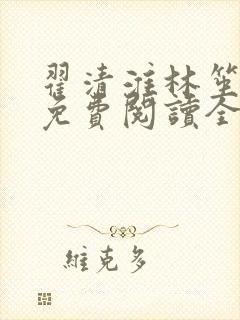 翟清淮林笙
免費閱讀全
維克多